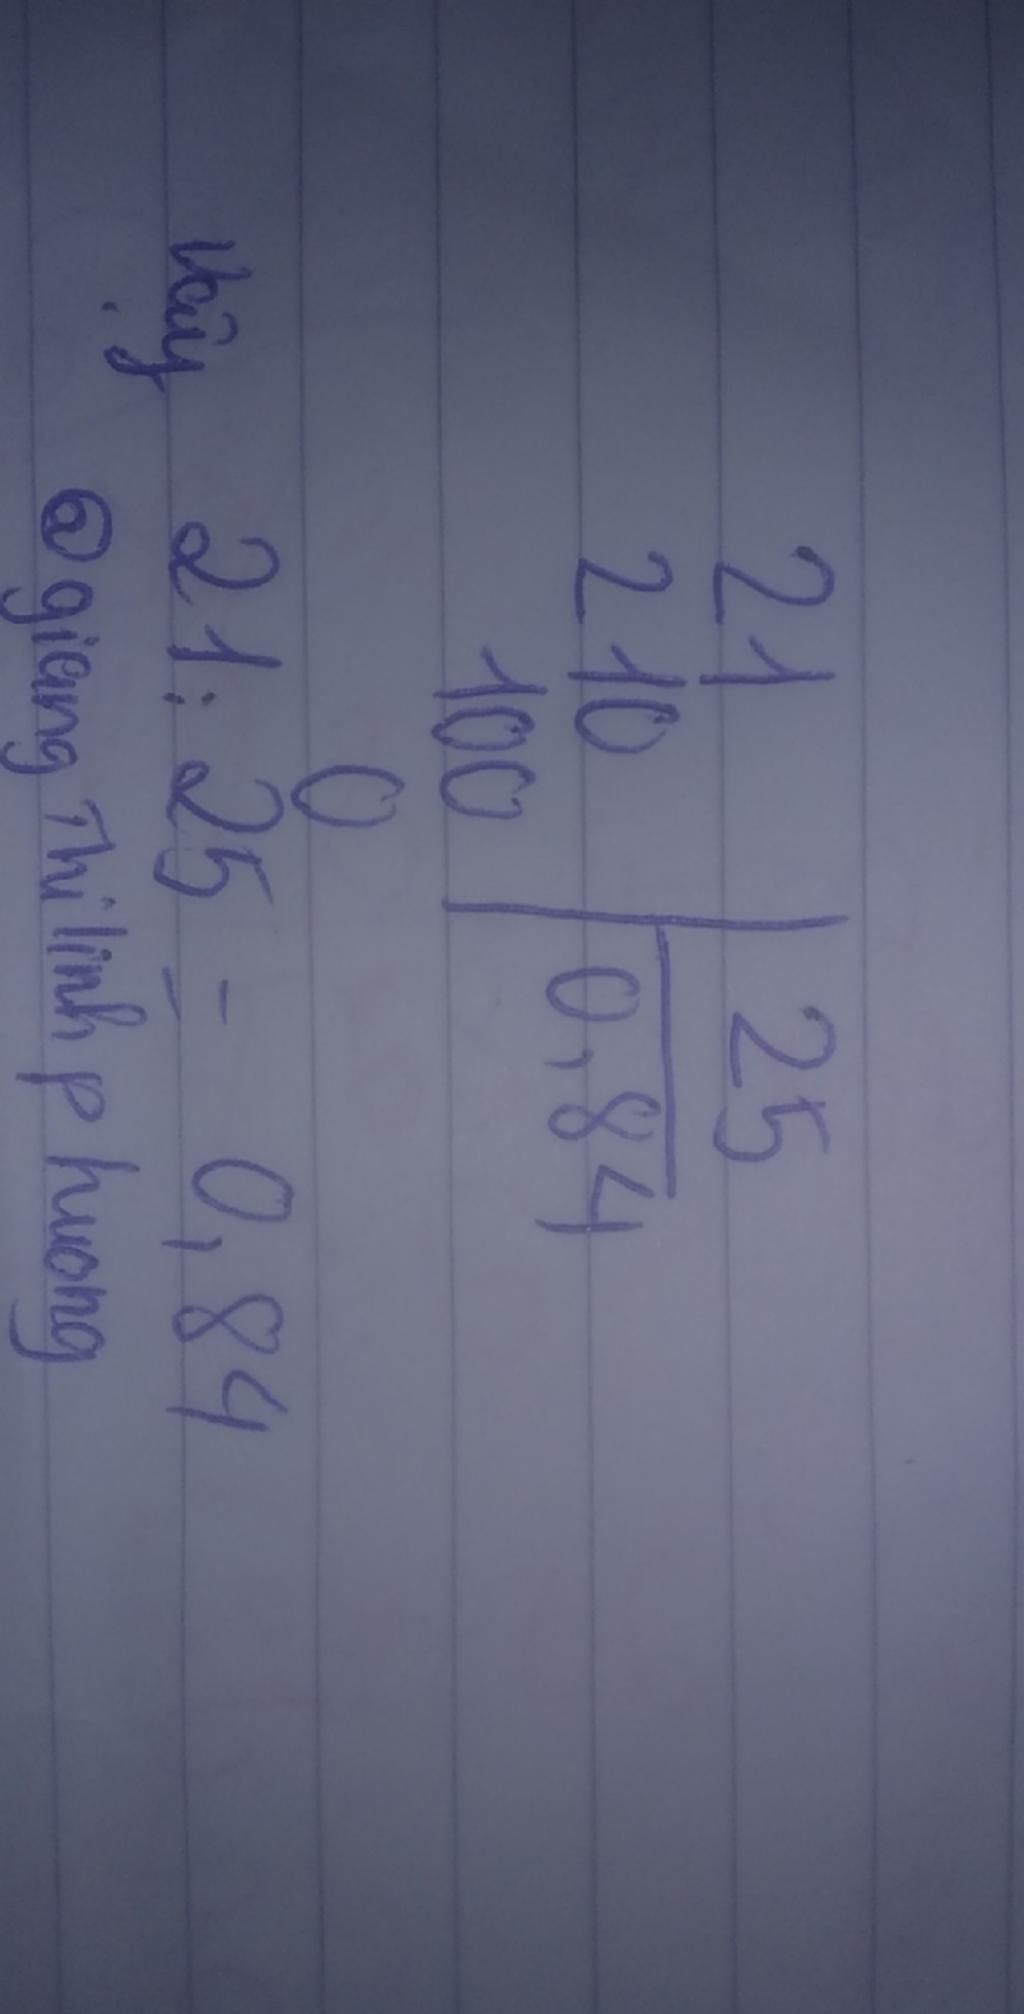 21 25
210 0,84
100
0
Vậy 21 : 25 = 0,84
@giang Thilinh phuong